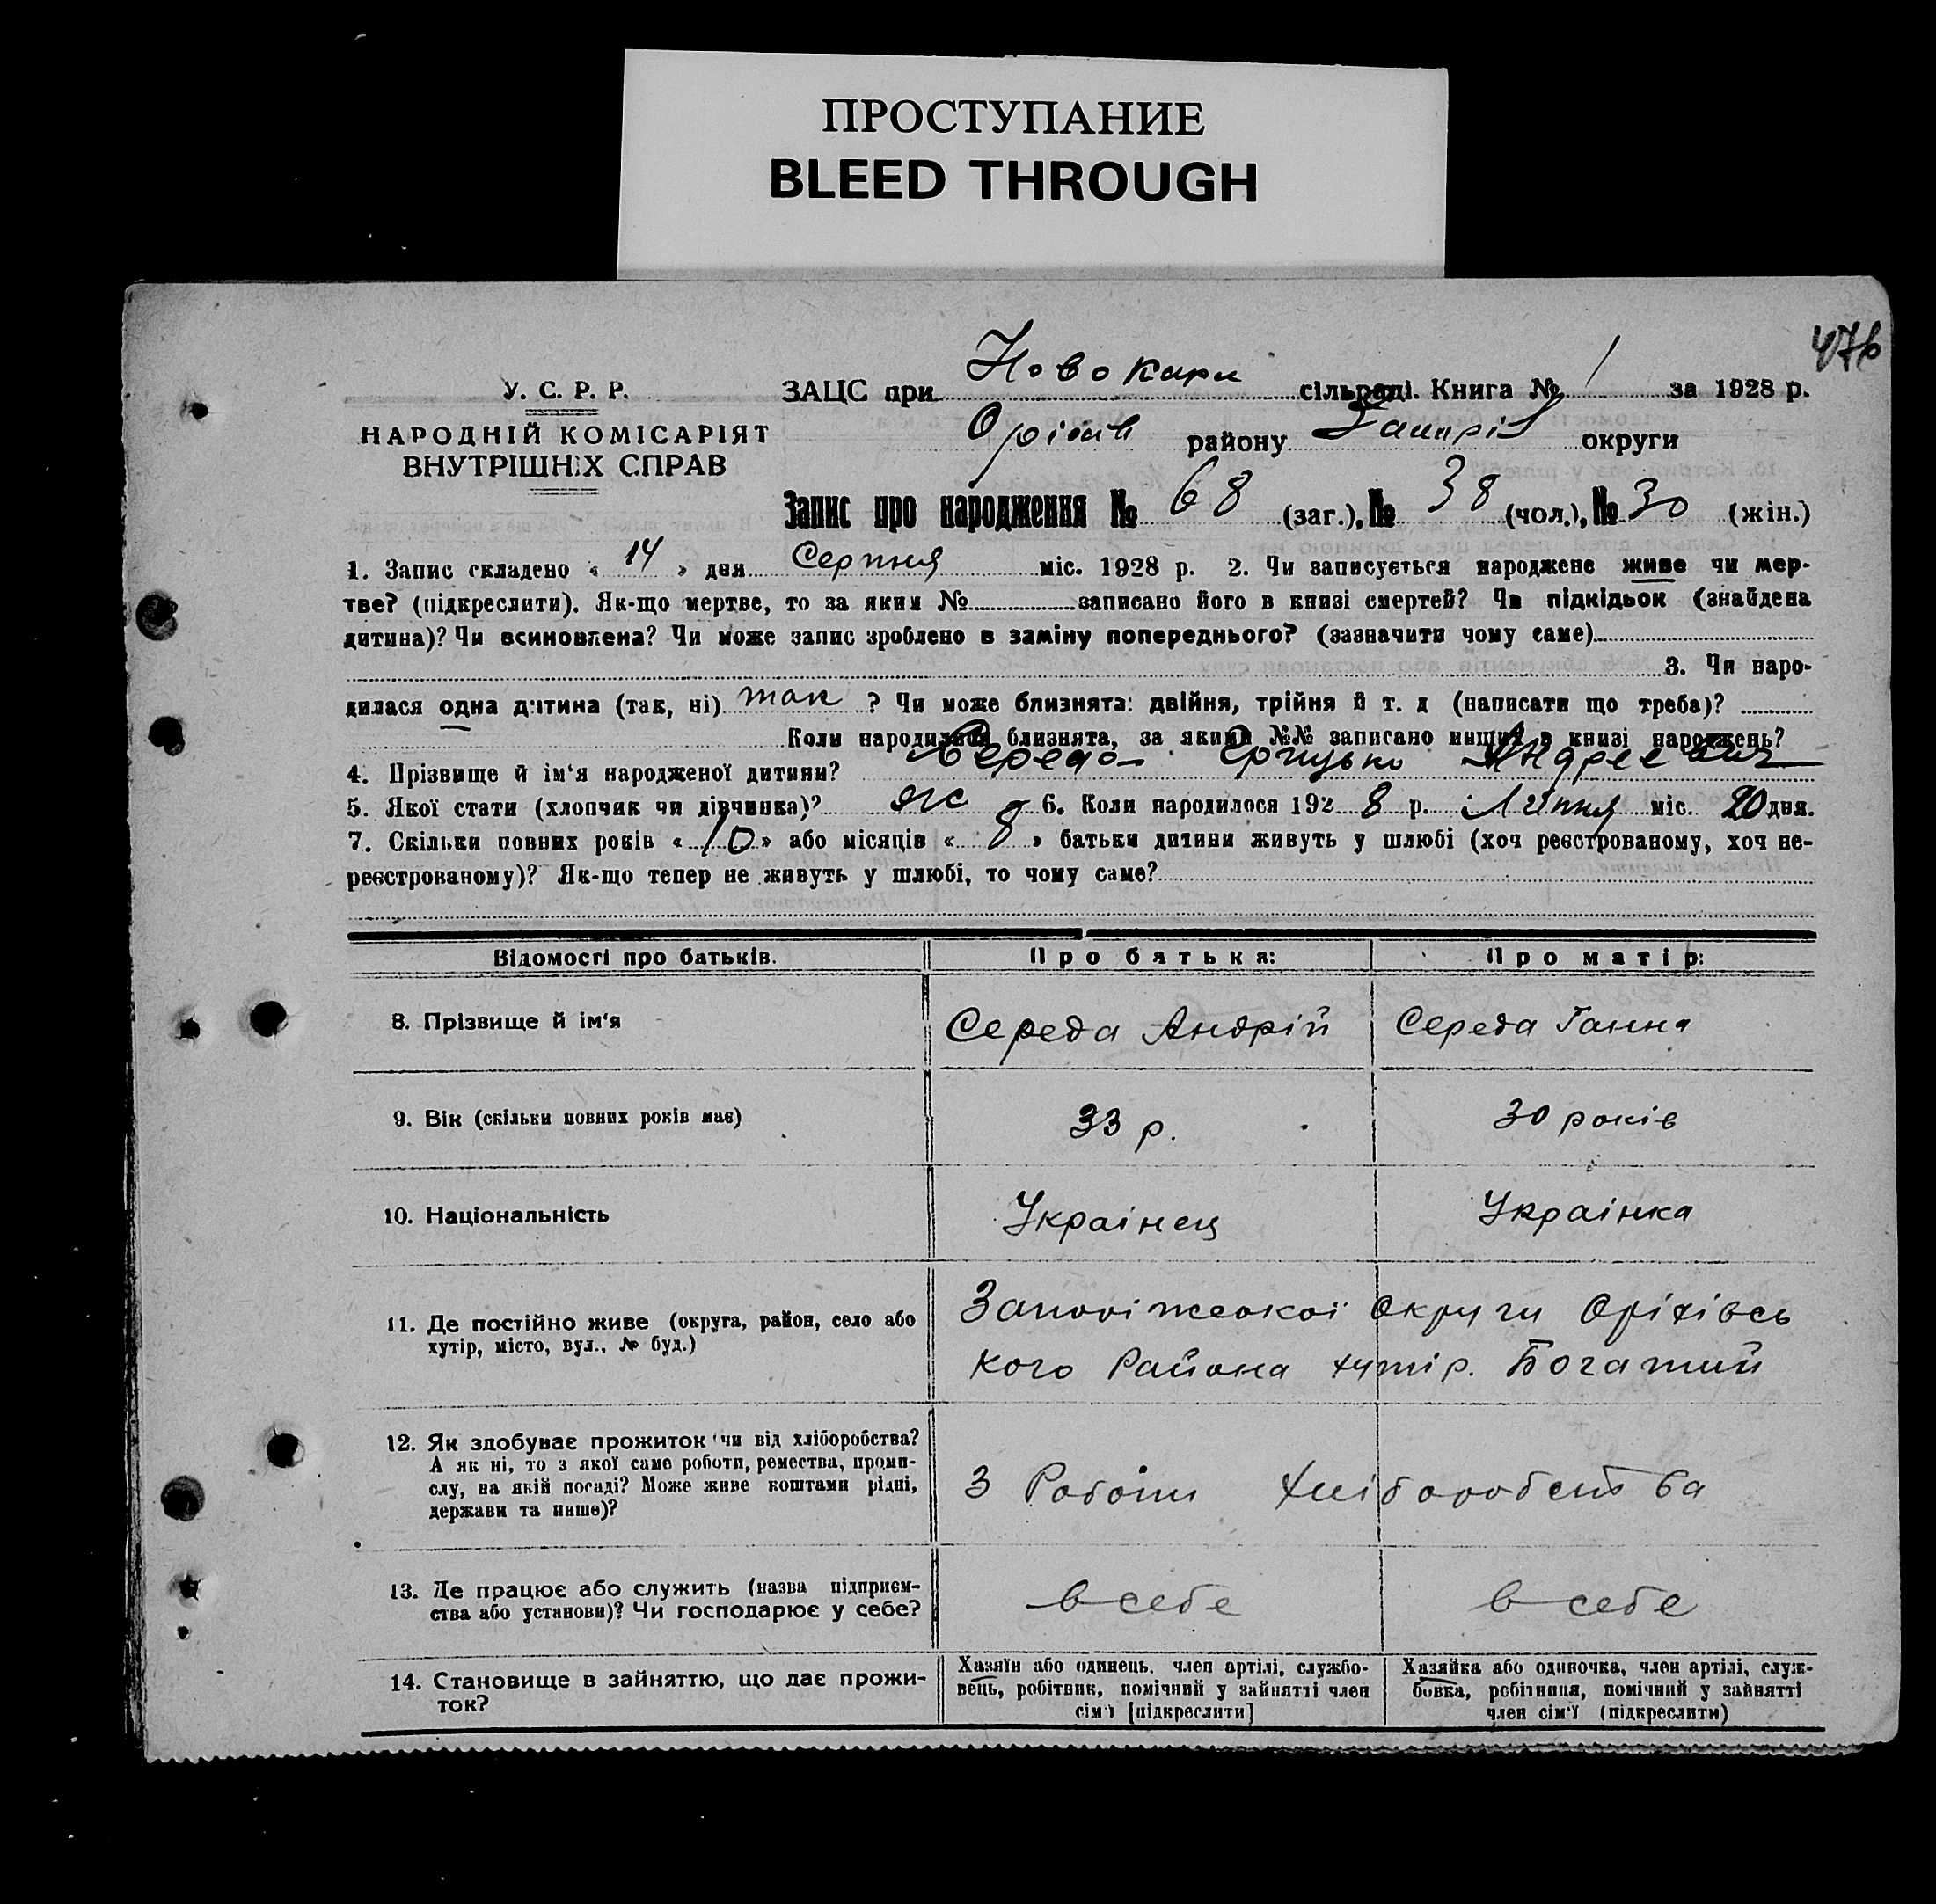 ПРОСТУПАНИЕ
BLEED THROUGH
476
У. С. Р. Р.
НАРОДНІЙ КОМІСАРІЯТ
ВНУТРІШНІХ СПРАВ
ЗАЦС при Новокарл сільраді. Книга № 1 за 1928 р.
Оріхів району округи
Запис про народження № 68 (заг.), № 38 (чол.), № 30 (жін.)
1. Запис складено « 14 » дня Серпня міс. 1928 р. 2. Чи записується народжене живе чи мер-
тве? (підкреслити). Як-що мертве, то за яким № записано його в книзі смертей? Чи підкідьок (знайдена
дитина)? Чи всиновлена? Чи може запис зроблено в заміну попереднього? (зазначити чому саме)
3. Чи наро-
дилася одна дитина (так, ні) так ? Чи може близнята: двійня, трійня й т. д (написати що треба)?
Коли народилися близнята, за якими №№ записано инших в книзі народжень?
4. Прізвище й ім‘я народженої дитини? Середа Андреевич
5. Якої стати (хлопчик чи дівчинка)? 6. Коли народилося 192 8 р. Липня міс. 20 дня.
7. Скільки повних років « 10 » або місяців « 8 » батьки дитини живуть у шлюбі (хоч реєстрованому, хоч не-
реєстрованому)? Як-що тепер не живуть у шлюбі, то чому саме?
Відомості про батьків. Про батька: Про матір:
8. Прізвище й ім‘я Середа Андрій Середа Ганна
9. Вік (скільки повних років має) 33 р. 30 років
10. Національність Українец Українка
11. Де постійно живе (округа, район, село або
хутір, місто, вул., № буд.)
Запоріжської Округи Оріхівсь
кого Района хутір. Богатий
12. Як здобуває прожиток чи від хліборобства?
А як ні, то з якої саме роботи, ремества, проми-
слу, на якій посаді? Може живе коштами рідні,
держави та инше)?
З Роботи Хліборобства
13. Де працює або служить (назва підприєм-
ства або установи)? Чи господарює у себе?
в себе в себе
14. Становище в зайняттю, що дає прожи-
ток?
Хазяїн або одинець. член артілі, службо-
вець, робітник, помічний у зайнятті член
сім‘ї [підкреслити]
Хазяйка або одиночка, член артілі, служ-
бовка, робітниця, помічний у зайнятті
член сім‘ї (підкреслити)